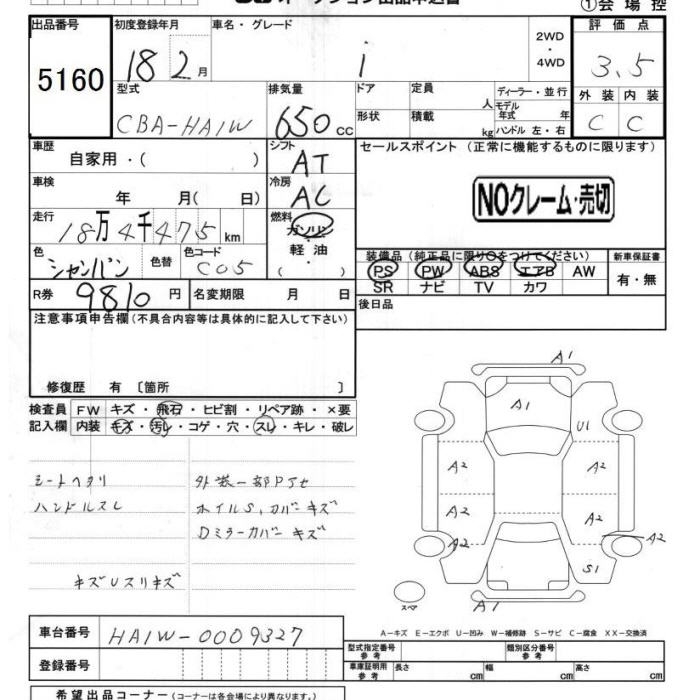 オークション出品申込書
①会場控
出品番号 初度登録年月 車名・グレード 2WD・4WD 評価点
5160 18 2月 i 3.5
型式 排気量 ドア 定員 人 ディーラー・並行 外装 内装
CBA-HA1W 650cc 形状 積載 kg モデル年式 年 C C
ハンドル 左・右
車歴 シフト セールスポイント (正常に機能するものに限ります)
自家用・( ) AT
車検 冷房 NOクレーム・売切
年 月( 日) AC
走行 燃料
18万4千475km ガソリン
色 色替 色コード 軽油 装備品(純正品に限り○をつけてください) 新車保証書
シャンパン C05 ( ) PS PW ABS エアB AW 有・無
SR ナビ TV カワ
R券 9810円 名変期限 月 日 後日品
注意事項申告欄(不具合内容等は具体的に記入して下さい)
修復歴 有 〔箇所 〕
検査員 FW キズ・飛石・ヒビ割・リペア跡・×要
記入欄 内装 キズ・汚レ・コゲ・穴・スレ・キレ・破レ
シートヘタリ 外装一部Pアセ
ハンドルスレ ホイルS,カバーキズ
Dミラーカバーキズ
キズUスリキズ
A1
A1
U1
A2 A2
A2 A2
A2 A2
S1
スペア A1
A-キズ E-エクボ U-凹み W-補修跡 S-サビ C-腐食 XX-交換済
車台番号 HA1W-0009327
型式指定番号 参考 類別区分番号 参考
登録番号 車庫証明用 参考 長さ cm 幅 cm 高さ cm
希望出品コーナー(コーナーは各会場により異なります。)